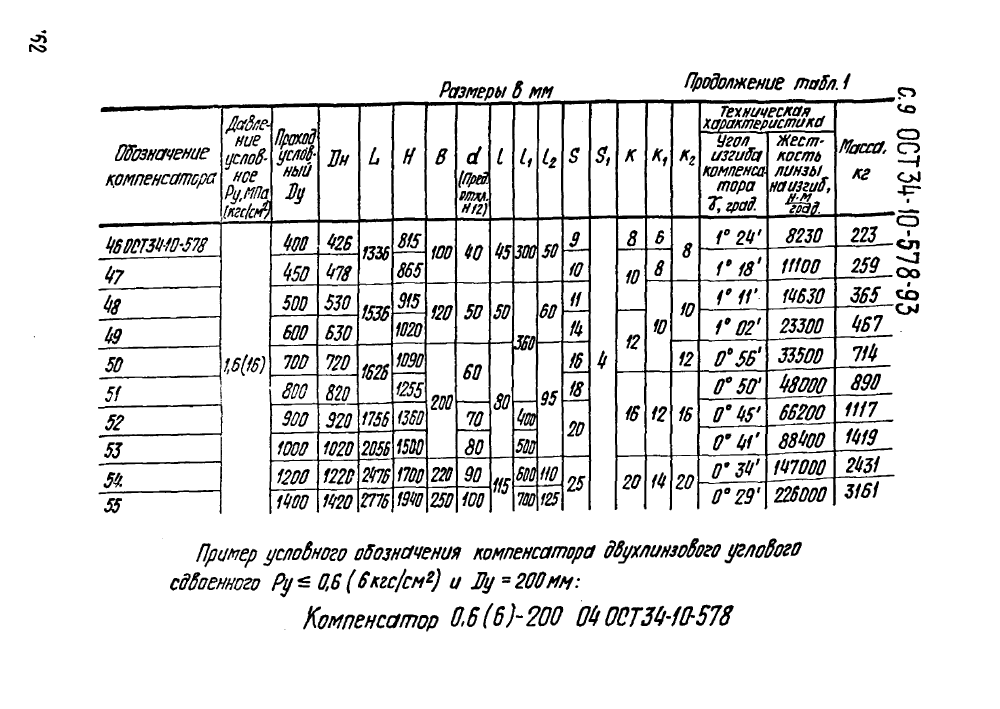 152
Размеры в мм
Продолжение табл. 1
с.9 ОСТ34-10-578-93
Обозначение компенсатора | Давление условное Ру, МПа (кгс/см²) | Проход условный Ду | Дн | L | H | B | d (Пред. откл. H12) | l | l₁ | l₂ | S | S₁ | K | K₁ | K₂ | Техническая характеристика: Угол изгиба компенсатора γ, град. | Жесткость линзы на изгиб, Н·м/град. | Масса, кг
46 ОСТ34-10-578 | 1,6(16) | 400 | 426 | 1336 | 815 | 100 | 40 | 45 | 300 | 50 | 9 | 4 | 8 | 6 | 8 | 1° 24' | 8230 | 223
47 | 450 | 478 | 865 | 10 | 10 | 8 | 1° 18' | 11100 | 259
48 | 500 | 530 | 1536 | 915 | 120 | 50 | 50 | 360 | 60 | 11 | 10 | 10 | 1° 11' | 14630 | 365
49 | 600 | 630 | 1020 | 14 | 12 | 1° 02' | 23300 | 467
50 | 700 | 720 | 1626 | 1090 | 200 | 60 | 80 | 95 | 16 | 12 | 0° 56' | 33500 | 714
51 | 800 | 820 | 1255 | 18 | 16 | 12 | 16 | 0° 50' | 48000 | 890
52 | 900 | 920 | 1756 | 1360 | 70 | 400 | 20 | 0° 45' | 66200 | 1117
53 | 1000 | 1020 | 2056 | 1500 | 80 | 500 | 0° 41' | 88400 | 1419
54 | 1200 | 1220 | 2476 | 1700 | 220 | 90 | 115 | 600 | 110 | 25 | 20 | 14 | 20 | 0° 34' | 147000 | 2431
55 | 1400 | 1420 | 2776 | 1940 | 250 | 100 | 700 | 125 | 0° 29' | 226000 | 3161
Пример условного обозначения компенсатора двухлинзового углового
сдвоенного Ру ≤ 0,6 (6 кгс/см²) и Ду = 200 мм:
Компенсатор 0,6 (6)-200 04 ОСТ34-10-578